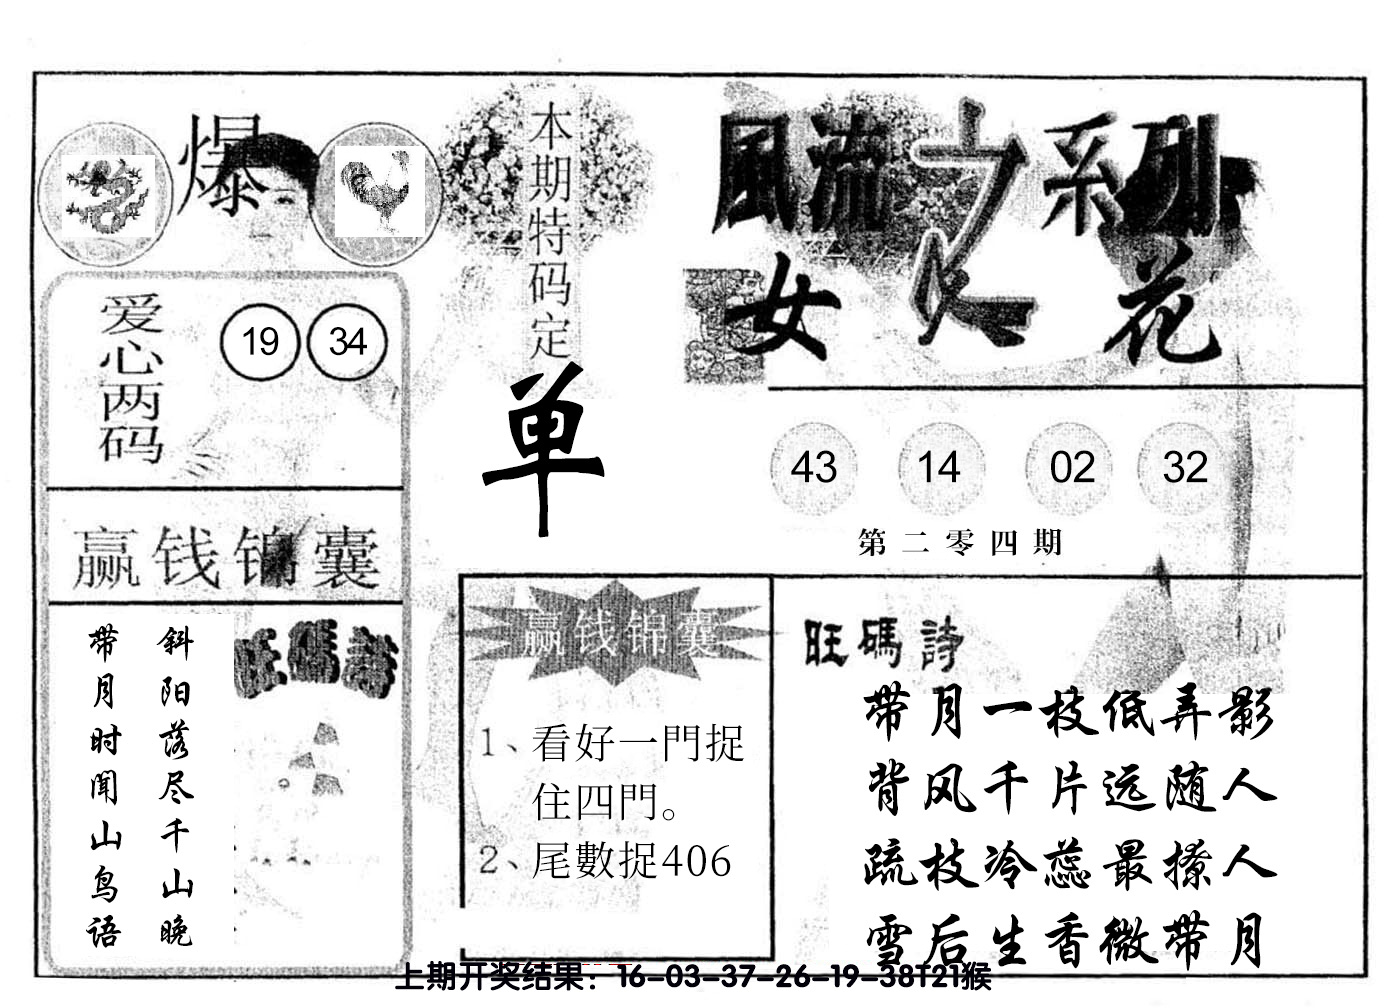 爆
本期特码定
单
風流之系列
女人花
爱心两码
19 34
43 14 02 32
第二零四期
赢钱锦囊
斜阳落尽千山晚
带月时闻山鸟语
旺碼詩
赢钱锦囊
1、看好一門捉
住四門。
2、尾數捉406
旺碼詩
带月一枝低弄影
背风千片远随人
疏枝冷蕊最撩人
雪后生香微带月
上期开奖结果：16-03-37-26-19-38T21猴